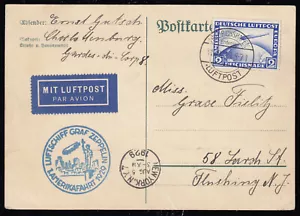 Absender: Ernst Gutsch
Charlottenburg
Straße
Gardes-du-Corps 8
Postkarte
DEUTSCHE LUFTPOST
2 REICHSMARK 2
LUFTPOST
MIT LUFTPOST
PAR AVION
Miss.
Grace Fielitz
58 Larch St.
Flushing N. J.
LUFTSCHIFF GRAF ZEPPELIN
1. AMERIKAFAHRT 1929
NEW YORK, N.Y.
AUG 5
1929